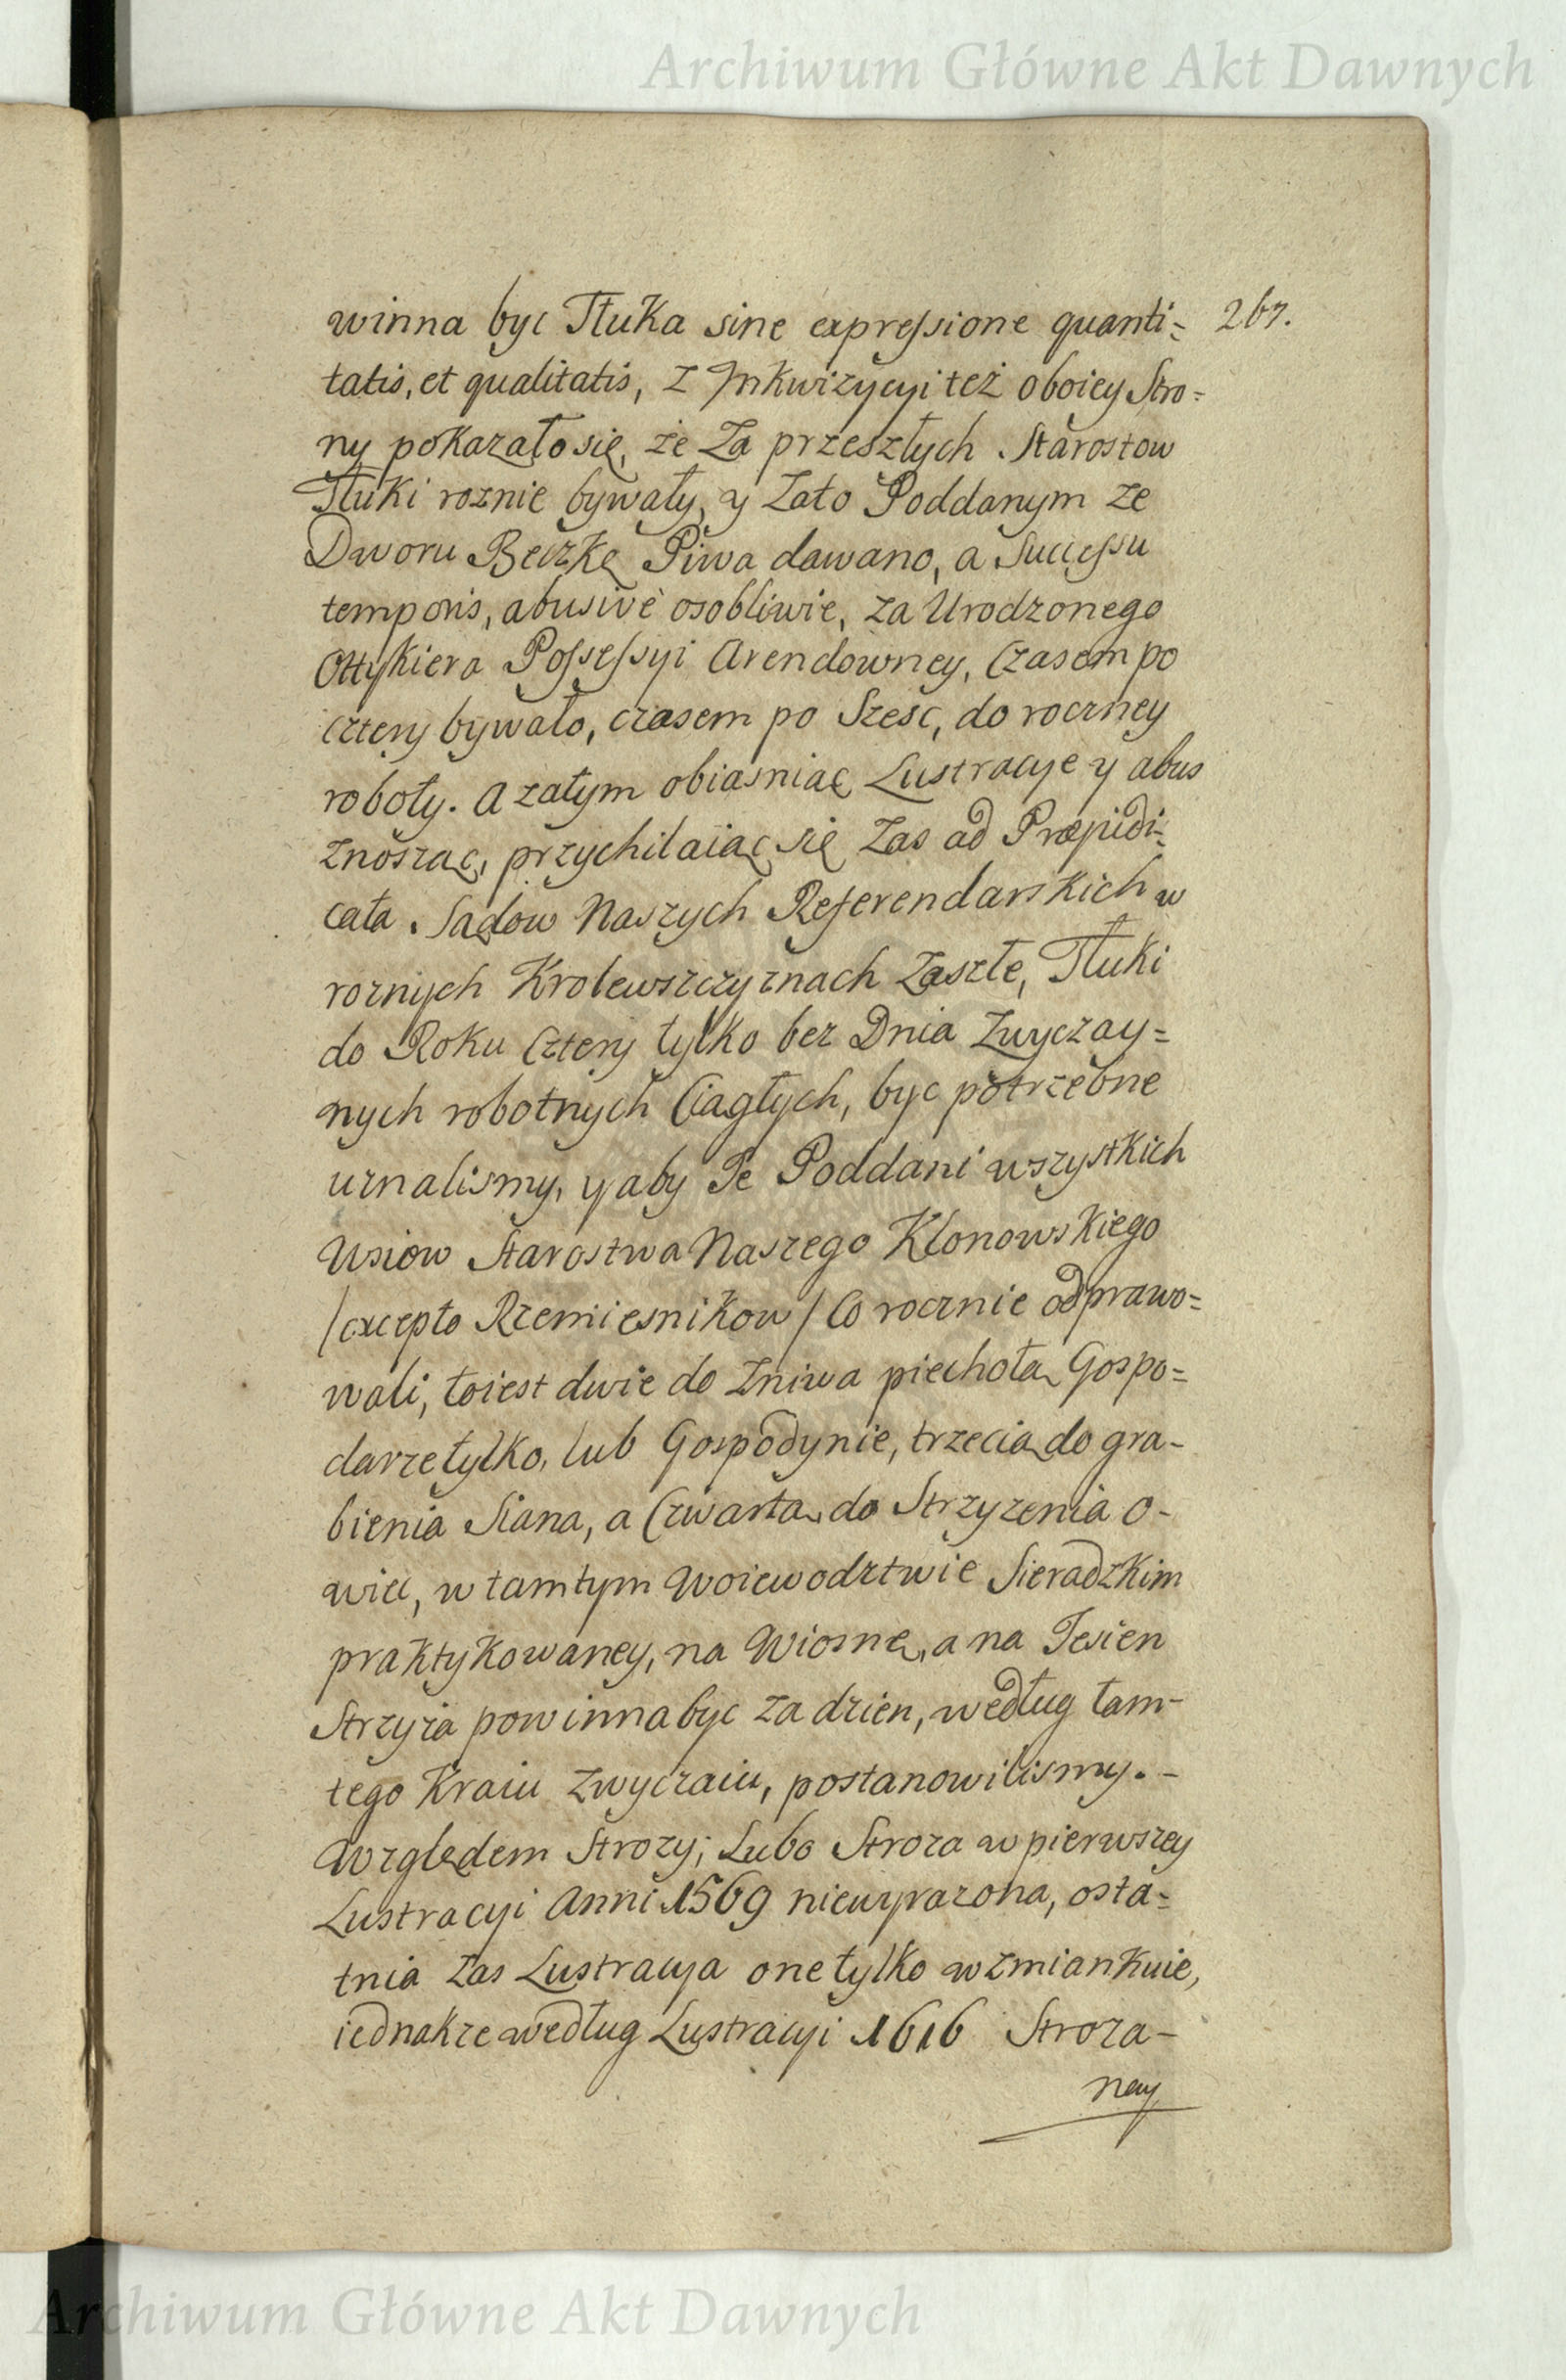 Archiwum Główne Akt Dawnych
267.
winna byc Tłuka sine expressione quanti=
tatis, et qualitatis, z Inkwizycyi też oboiey Stro=
ny pokazało się, że Za przeszłych Starostow
Tłuki roznie bywały, y Zato Poddanym ze
Dworu Beczkę Piwa dawano, a Successu
temporis, abusivè osobliwie, za Urodzonego
Ottykiera Possessyi Arendowney, Czasem po
cztery bywało, czasem po Szesc, do roczney
roboty. A zatym obiasniaię Lustracye y abus
znosząc, przychilaiąc się Zas ad Præjudi=
cata Sądow Naszych Referendarskich w
roznych Krolewszczyznach Zaszłe, Tłuki
do Roku Cztery tylko bez Dnia Zwyczay=
nych robotnych Ciągłych, byc potrzebne
uznalismy, y aby Te Poddani wszystkich
Wsiow Starostwa Naszego Klonowskiego
/excepto Rzemiesnikow/ Co rocznie odprawo=
wali, toiest dwie do Zniwa piechotą Gospo=
darze tylko, lub Gospodynie, trzecią do gra-
bienia Siana, a Czwartą do Strzyzenia O-
wiec, w tamtym Woiewodztwie Sieradzkim
praktykowaney, na Wiosnę, a na Jesien
Strzyza powinna byc za dzien, według tam-
tego Kraiu zwyczaiu, postanowilismy. -
Względem Strozy; Lubo Stroza w pierwszey
Lustracyi Anni 1569 niewyrazona, osta=
tnia Zas Lustracya one tylko wzmiankuie,
iednakze według Lustracyi 1616 Stroza-
ney
Archiwum Główne Akt Dawnych